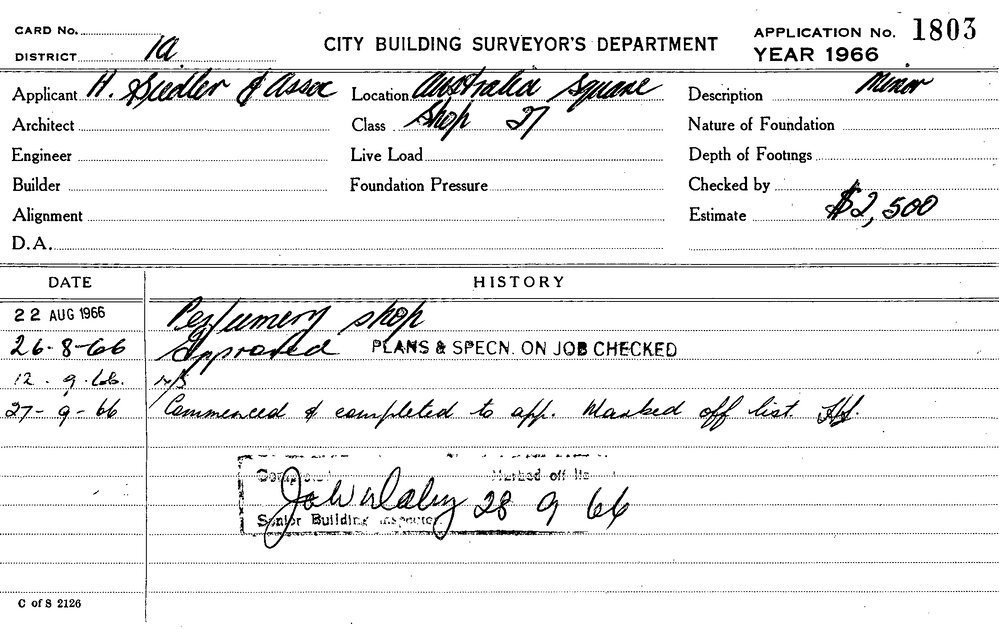 CARD No.
APPLICATION No. 1803
DISTRICT 1a
CITY BUILDING SURVEYOR'S DEPARTMENT
YEAR 1966
Applicant H. Siedler & Assoc Location Australia Square Description Minor
Architect Class Shop 27 Nature of Foundation
Engineer Live Load Depth of Footings
Builder Foundation Pressure Checked by
Alignment Estimate $2,500
D.A.
DATE HISTORY
22 AUG 1966 Perfumery shop
26-8-66 Approved PLANS & SPECN. ON JOB CHECKED
12.9.66. n/s
27-9-66 Commenced & completed to app. Marked off list.
Marked off
28 9 66
Senior Building Inspector
C of S 2126